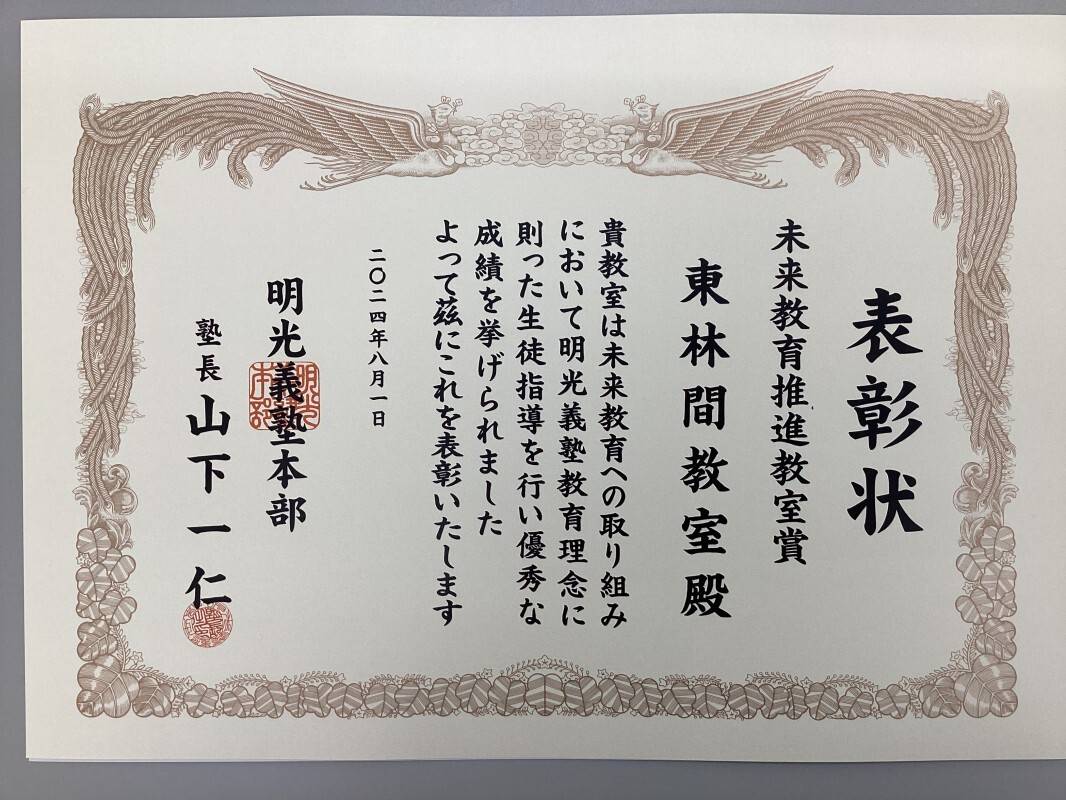 表彰状
未来教育推進教室賞
東林間教室殿
貴教室は未来教育への取り組み
において明光義塾教育理念に
則った生徒指導を行い優秀な
成績を挙げられました
よって茲にこれを表彰いたします
二〇二四年八月一日
明光義塾本部
塾長 山下一仁